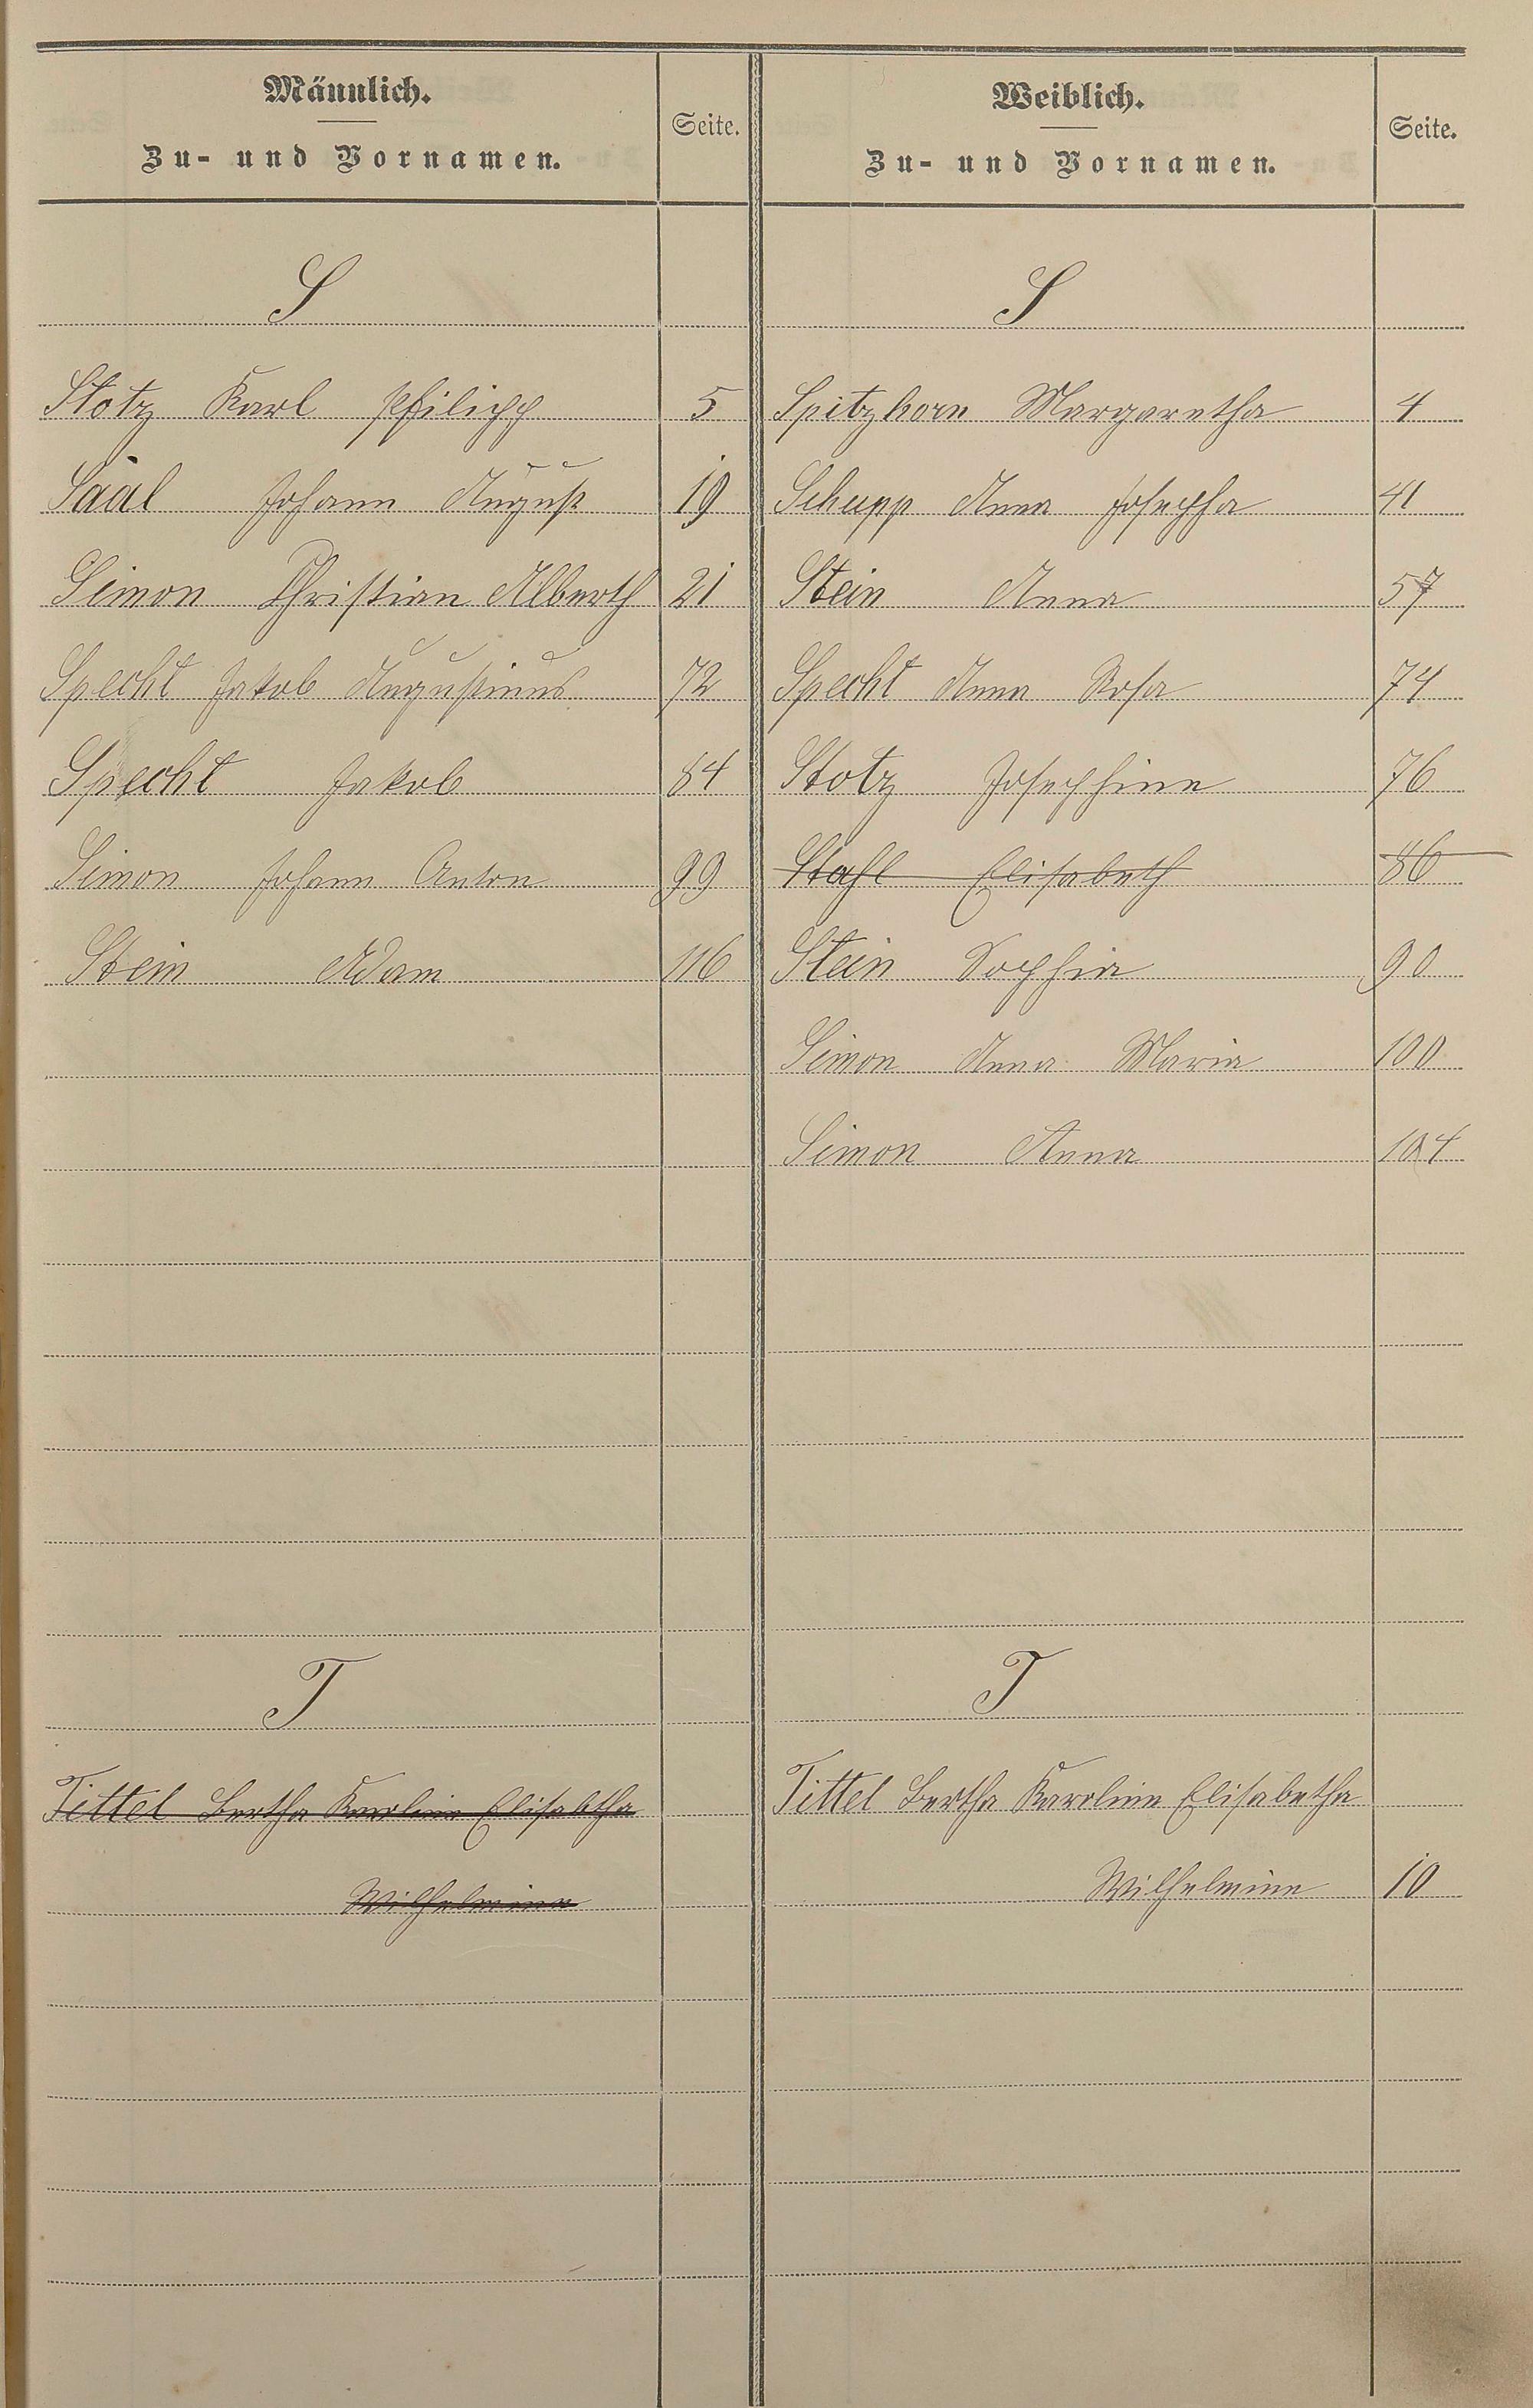 Männlich.
Zu- und Vornamen.
Seite.
S
Stotz Karl Philipp 5
Saal Johann August 19
Simon Christian Alberth 21
Specht Jakob Augustinus 72
Specht Jakob 84
Simon Johann Anton 99
Stein Adam 116
T
Tittel Bertha Karolina Elisabtha
Wilhelmina
Weiblich.
Zu- und Vornamen.
Seite.
S
Spitzhorn Margaretha 4
Schupp Anna Josepha 41
Stein Anna 57
Specht Anna Rosa 74
Stotz Josephine 76
Stahl Elisabeth 86
Stein Sophia 90
Simon Anna Maria 100
Simon Anna 104
T
Tittel Bertha Karoline Elisabetha
Wilhelmine 10